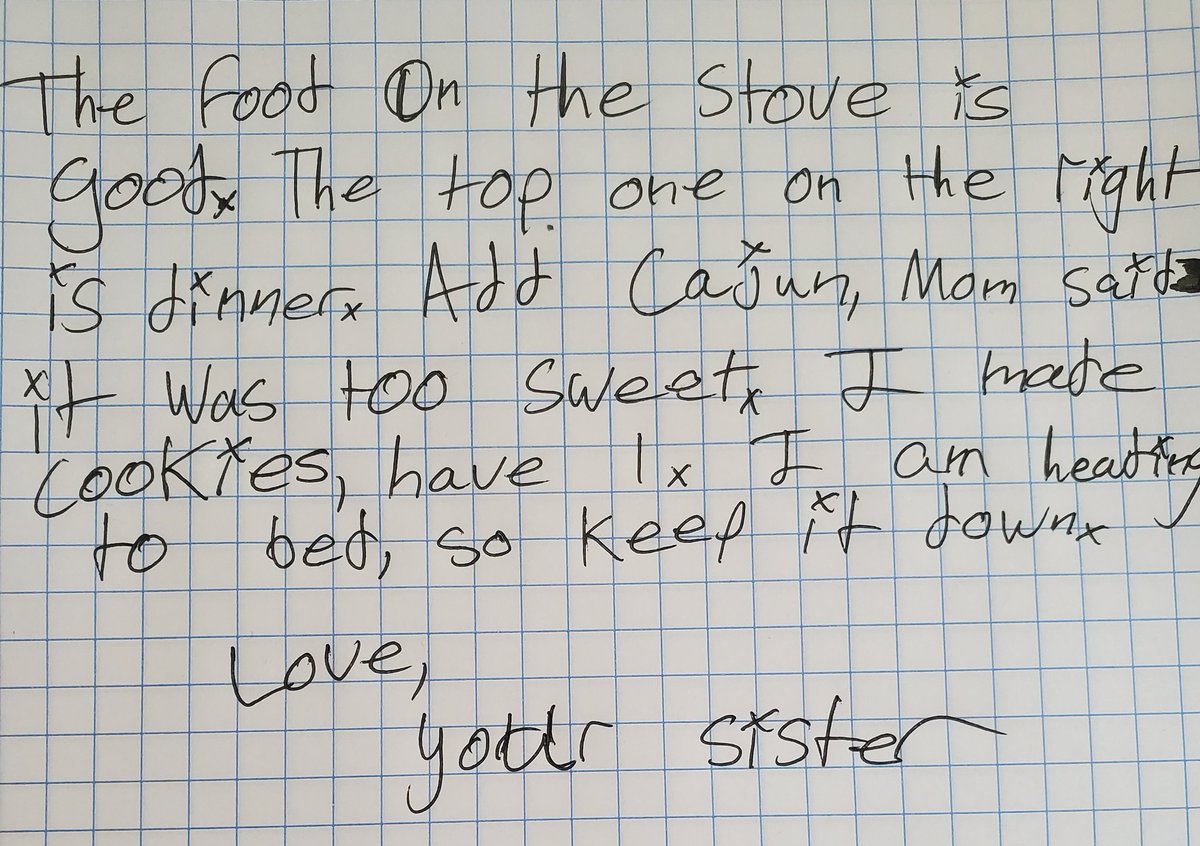 The food On the Stove is
good. The top one on the right
is dinner. Add Cajun, Mom said
it was too sweet. I made
cookies, have 1. I am heading
to bed, so keep it down.
Love,
your sister